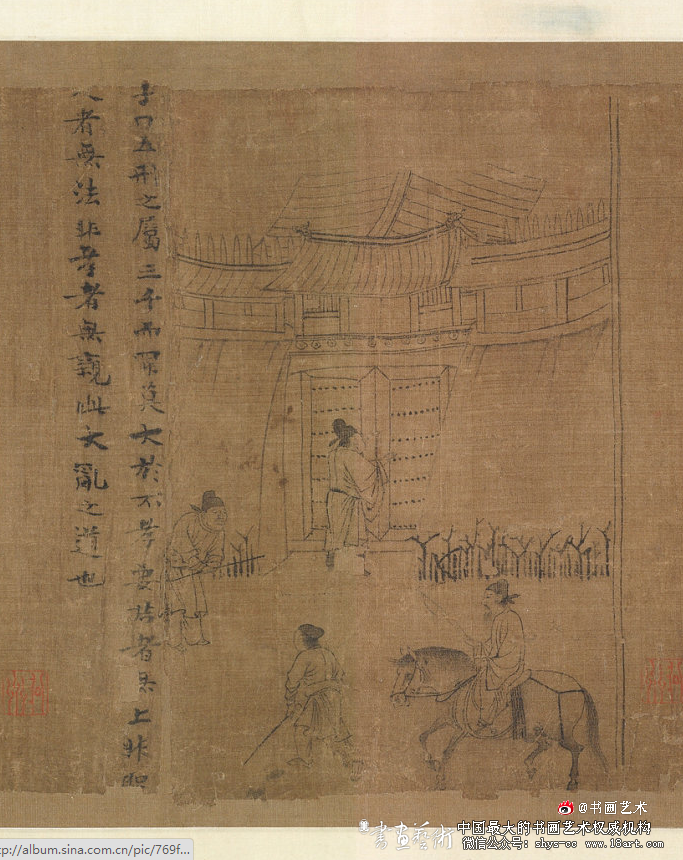 子曰五刑之屬三千而罪莫大於不孝要君者無上非聖
人者無法非孝者無親此大亂之道也
@书画艺术
書畫藝術
中国最大的书画艺术权威机构
微信公众号：shys-cc www.18art.com
tp://album.sina.com.cn/pic/769f...